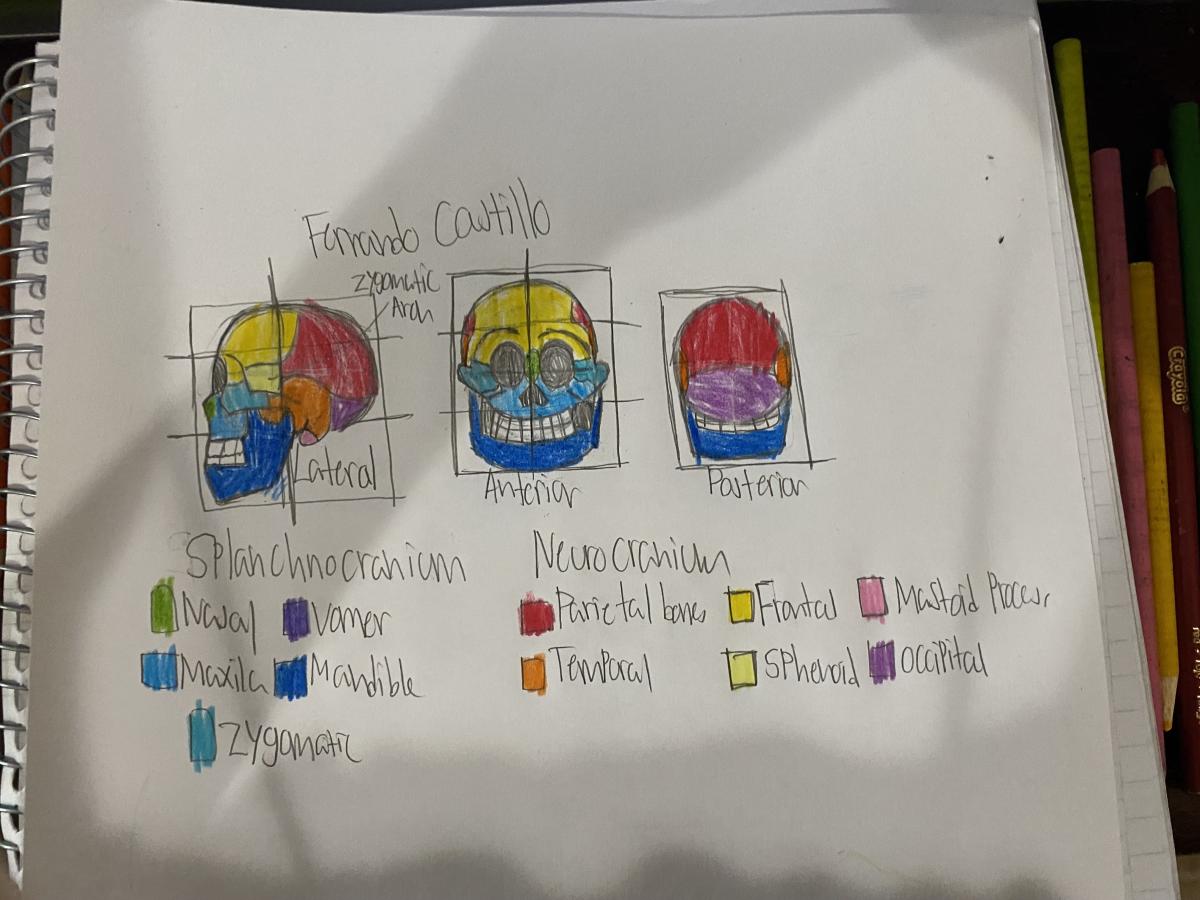 Fernando Castillo
Zygomatic
Arch
Lateral
Anterior
Posterior
Splanchnocranium
Nasal
Vomer
Maxila
Mandible
Zygomatic
Neurocranium
Parietal bones
Frontal
Mastoid Process
Temporal
Sphenoid
Occipital
Crayola